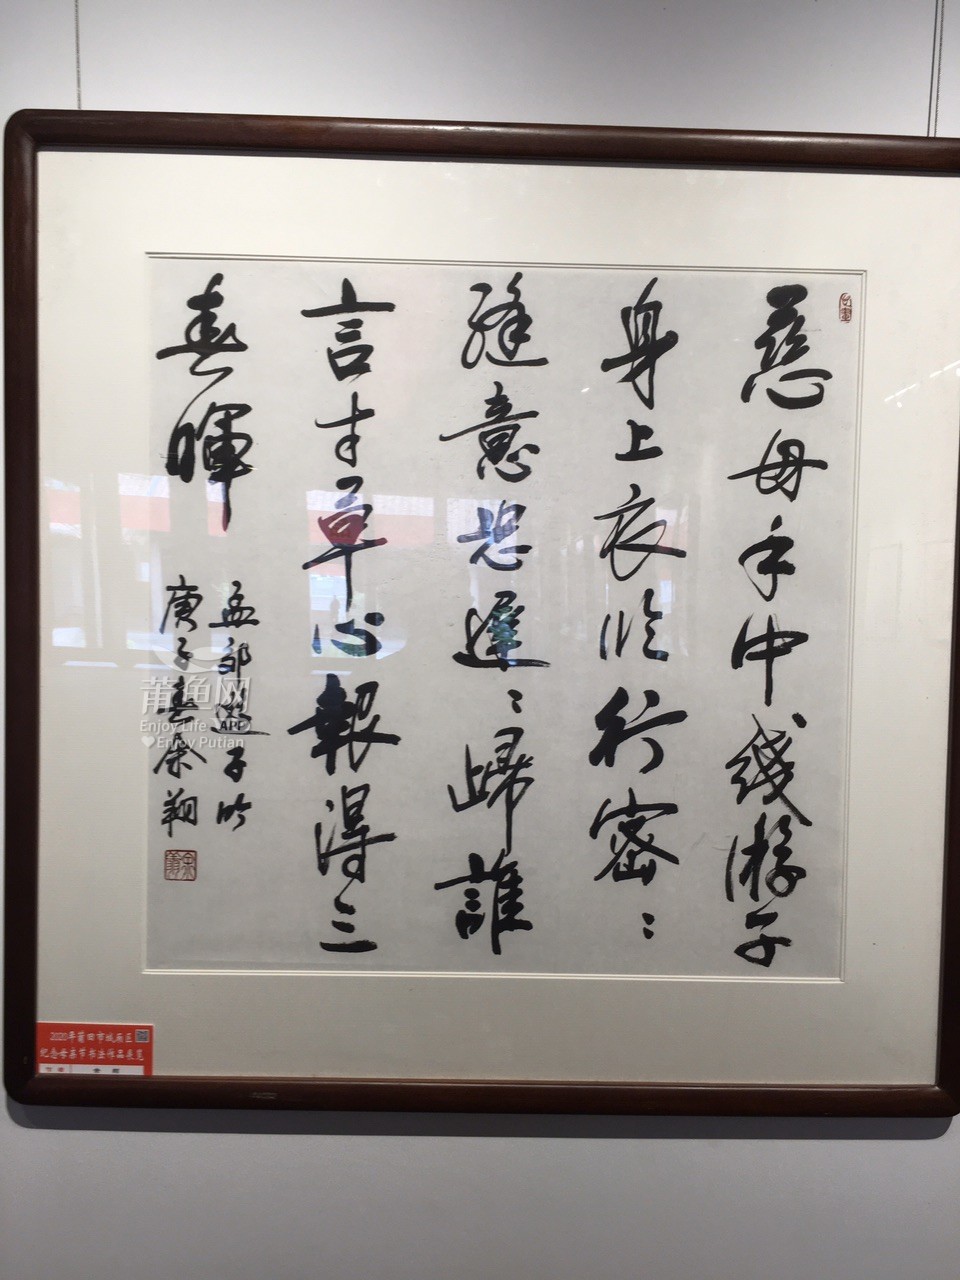 慈母手中綫游子
身上衣临行密々
縫意恐遲々歸誰
言寸草心報得三
春暉
孟郊遊子吟
庚子春余翔
莆鱼网
Enjoy Life APP
Enjoy Putian
2020年莆田市城厢区
纪念母亲节书法作品展览